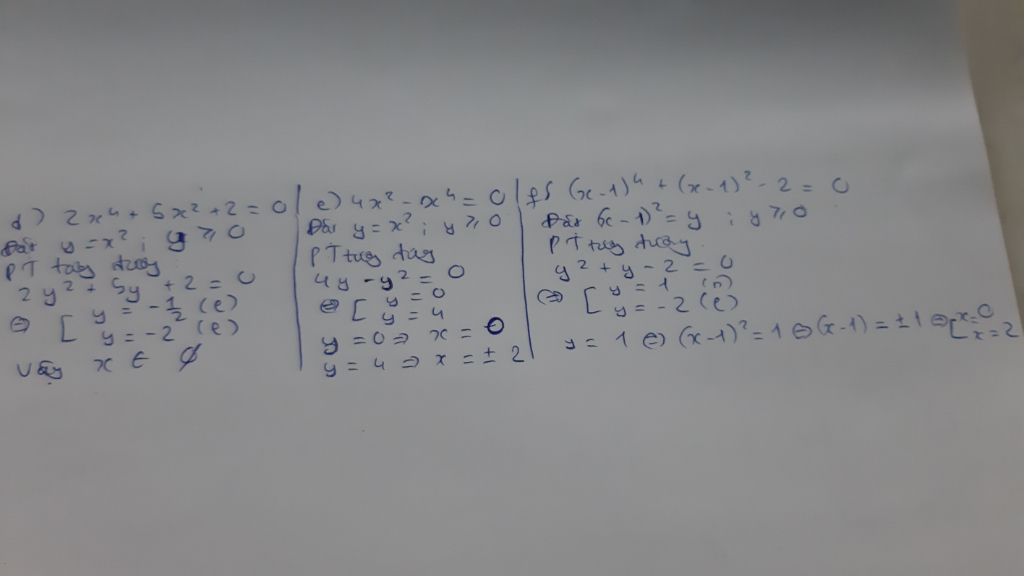 d) 2x⁴ + 5x² + 2 = 0
Đặt y = x² ; y ⩾ 0
PT tương đương
2y² + 5y + 2 = 0
⇔ [ y = -1/2 (l)
y = -2 (l)
Vậy x ∈ ∅
e) 4x² - x⁴ = 0
Đặt y = x² ; y ⩾ 0
PT tương đương
4y - y² = 0
⇔ [ y = 0
y = 4
y = 0 ⇒ x = 0
y = 4 ⇒ x = ± 2
f) (x-1)⁴ + (x-1)² - 2 = 0
Đặt (x-1)² = y ; y ⩾ 0
PT tương đương
y² + y - 2 = 0
⇔ [ y = 1 (n)
y = -2 (l)
y = 1 ⇔ (x-1)² = 1 ⇔ (x-1) = ± 1 ⇔ [ x = 0
x = 2